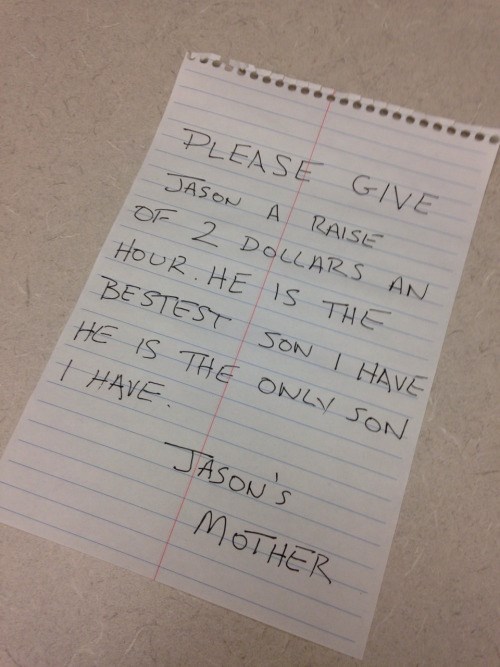 PLEASE GIVE
JASON A RAISE
OF 2 DOLLARS AN
HOUR. HE IS THE
BESTEST SON I HAVE
HE IS THE ONLY SON
I HAVE.
JASON'S
MOTHER